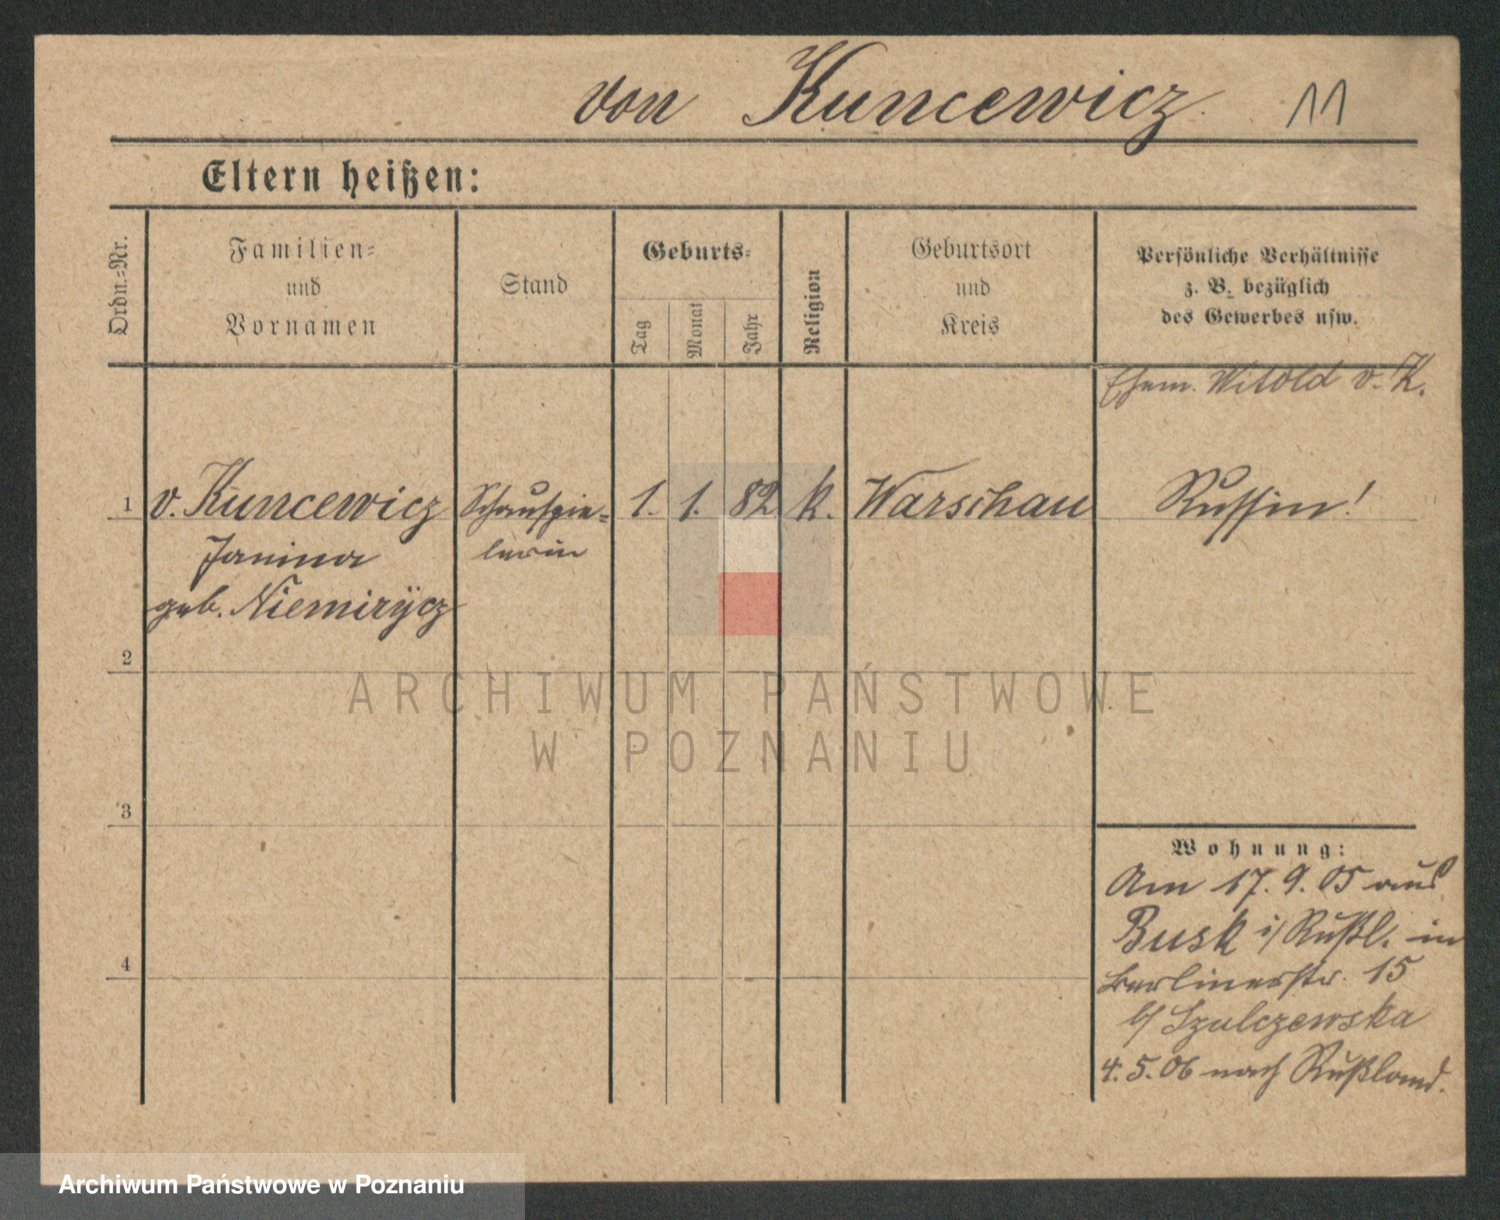 von Kuncewicz 11
Eltern heißen:
Ordn.-Nr.
Familien-
und
Vornamen
Stand
Geburts-
Tag
Monat
Jahr
Religion
Geburtsort
und
Kreis
Persönliche Verhältnisse
z. B. bezüglich
des Gewerbes usw.
Ehem. Witold v. K.
1 v. Kuncewicz Schauspie- 1. 1. 82 k. Warschau Russin!
Janina lerin
geb. Niemirÿcz
2
ARCHIWUM PAŃSTWOWE
W POZNANIU
3
Wohnung:
Am 17. 9. 05 aus
Busk i/ Rußl. in
Berlinerstr. 15
b/ Szulczewska
4
4. 5. 06 nach Rußland.
Archiwum Państwowe w Poznaniu